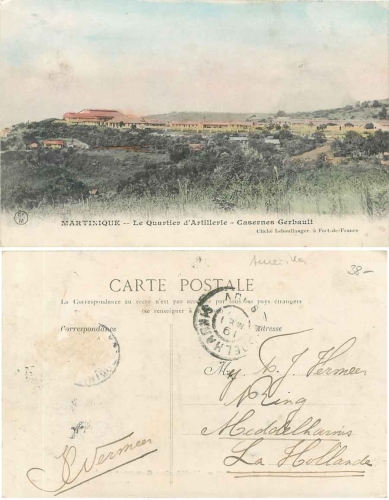 MARTINIQUE -- Le Quartier d'Artillerie - Casernes Gerbault
Cliché Leboullanger, à Fort-de-France
Antilles
38-
CARTE POSTALE
La Correspondance au recto n'est pas acceptée par tous les pays étrangers
(se renseigner à la Poste)
Correspondance
Adresse
MIDDELHARNIS
My. H. J. Vermeer
Ring
Middelharnis
La Hollande
Vermeer